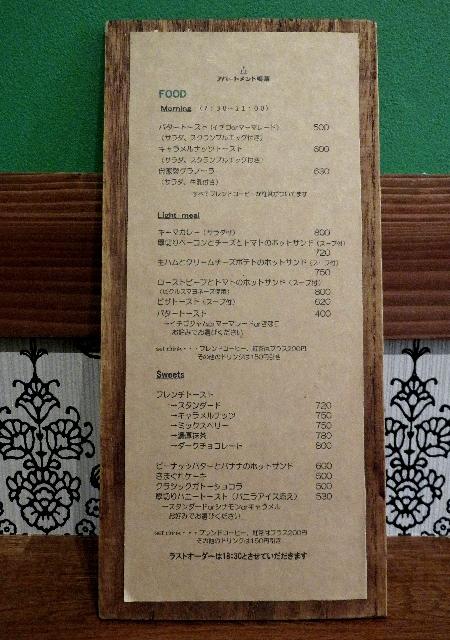 アパートメント喫茶
FOOD
Morning (7:30~11:00)
バタートースト(イチゴorマーマレード) 500
(サラダ、スクランブルエッグ付き)
キャラメルナッツトースト 600
(サラダ、スクランブルエッグ付き)
自家製グラノーラ 630
(サラダ、牛乳付き)
すべてブレンドコーヒーが付いています
Light meal
キーマカレー(サラダ付) 800
厚切りベーコンとチーズとトマトのホットサンド(スープ付)
720
生ハムとクリームチーズポテトのホットサンド(スープ付)
750
ローストビーフとトマトのホットサンド(スープ付)
(ピクルスマヨネーズ使用) 800
ピザトースト(スープ付) 620
バタートースト 400
→イチゴジャムorマーマレードorきなこ
お好みでお選びください
set drink・・・ブレンドコーヒー、紅茶はプラス200円
その他のドリンクは150円引き
Sweets
フレンチトースト
→スタンダード 720
→キャラメルナッツ 750
→ミックスベリー 750
→濃厚抹茶 780
→ダークチョコレート 800
ピーナッツバターとバナナのホットサンド 600
きまぐれケーキ 500
クラシックガトーショコラ 500
厚切りハニートースト(バニラアイス添え) 530
→スタンダードorシナモンorキャラメル
お好みでお選びください
set drink・・・ブレンドコーヒー、紅茶はプラス200円
その他のドリンクは150円引き
ラストオーダーは18:30とさせていただだきます